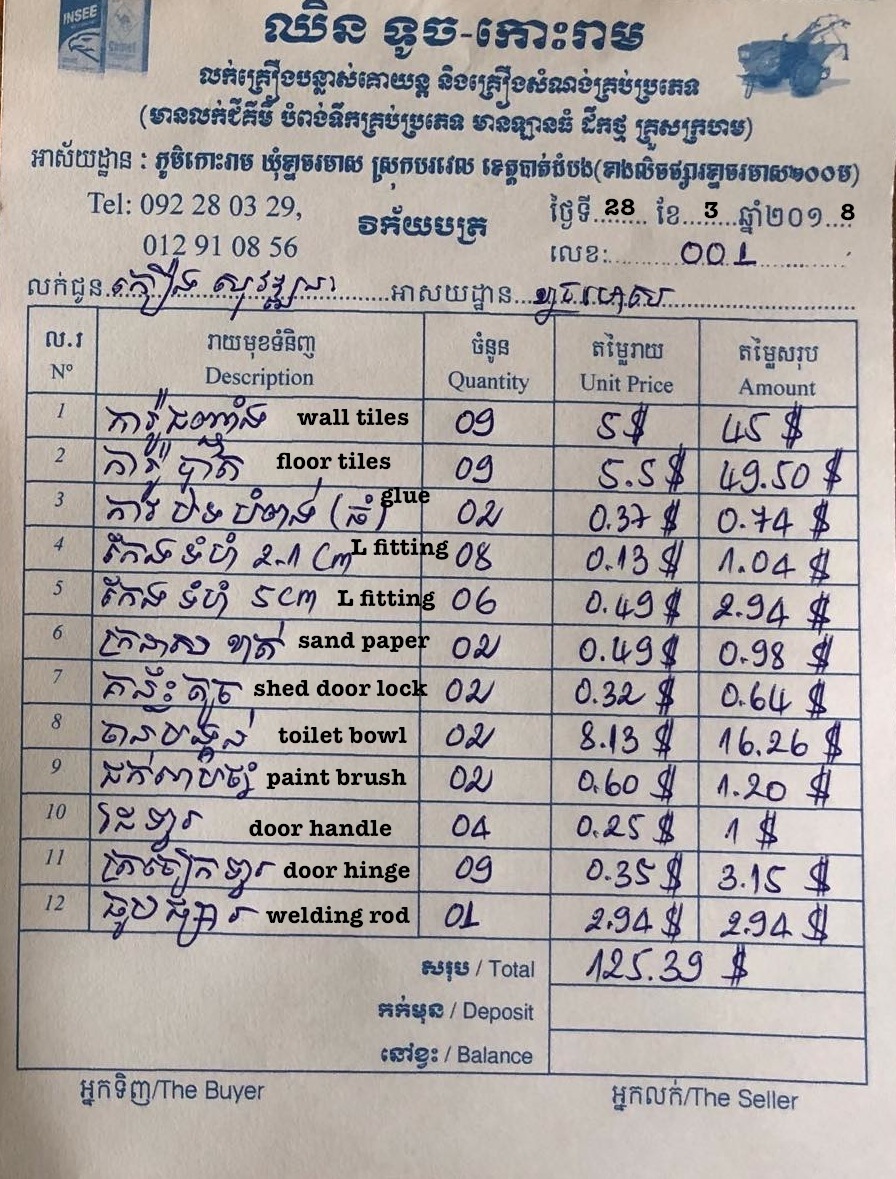 INSEE
Camel
ឈិន ទូច-កោះរាម
លក់គ្រឿងបន្លាស់គោយន្ត និងគ្រឿងសំណង់គ្រប់ប្រភេទ
(មានលក់ជីគីមី បំពង់ទឹកគ្រប់ប្រភេទ មានឡានធំ ដឹកថ្ម គ្រួសក្រហម)
អាស័យដ្ឋាន : ភូមិកោះរាម ឃុំខ្នាចរមាស ស្រុកបវេល ខេត្តបាត់ដំបង(ខាងលិចផ្សារខ្នាចរមាស២០០ម)
Tel: 092 28 03 29,
012 91 08 56
វិក័យបត្រ
ថ្ងៃទី..28.. ខែ..3.. ឆ្នាំ២០១.8
លេខ:......001
លក់ជូន គឿង សុវឌ្ឍនា អាសយដ្ឋាន ខ្នាចរមាស
ល.រ រាយមុខទំនិញ ចំនួន តម្លៃរាយ តម្លៃសរុប
Nº Description Quantity Unit Price Amount
1 ការ៉ូជញ្ជាំង wall tiles 09 5 $ 45 $
2 ការ៉ូ ប៉ាតេ floor tiles 09 5.5 $ 49.50 $
3 កាវ បិទ បំពង់ (ធំ) glue 02 0.37 $ 0.74 $
4 កែង ទំហំ 2.1 cm L fitting 08 0.13 $ 1.04 $
5 កែង ទំហំ 5cm L fitting 06 0.49 $ 2.94 $
6 ក្រដាស ខាត់ sand paper 02 0.49 $ 0.98 $
7 គន្លឹះ តូច shed door lock 02 0.32 $ 0.64 $
8 ចានបង្គន់ toilet bowl 02 8.13 $ 16.26 $
9 ជក់លាបថ្នាំ paint brush 02 0.60 $ 1.20 $
10 ដៃ ទ្វារ door handle 04 0.25 $ 1 $
11 ត្រចៀក ទ្វារ door hinge 09 0.35 $ 3.15 $
12 ធូប ផ្សារ welding rod 01 2.94 $ 2.94 $
សរុប / Total 125.39 $
កក់មុន / Deposit
នៅខ្វះ / Balance
អ្នកទិញ/The Buyer អ្នកលក់/The Seller